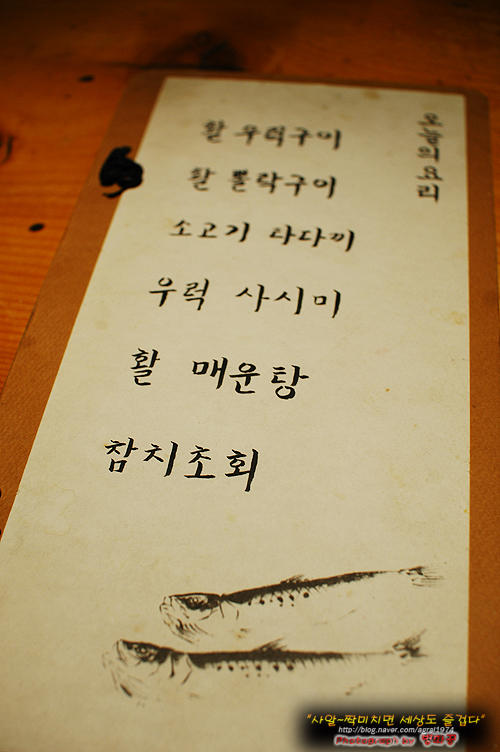 오늘의요리
활 우럭구이
활 뽈락구이
소고기 타다끼
우럭 사시미
활 매운탕
참치초회
"사알~짝미치면 세상도 즐겁다"
http://blog.naver.com/agral1974